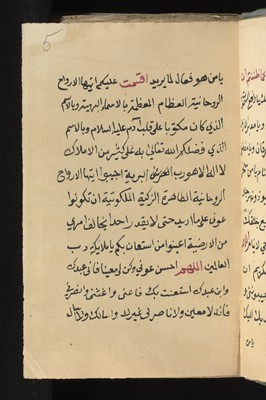 5
يا من هو فعال لما يريد اقسمت عليكم ايتها الارواح
الروحانية العظام المعظمة بالاسماء البهية وبالاسم
الذي كان مكتوبا على قلب آدم عليه السلام وبالاسم
الذي فضلكم الله تعالى به على كثير من الاملاك
لا اله الا هو رب العرش اجيبوا ايتها الارواح
الروحانية الطاهرة الزكية الملكوتية ان تكونوا
عوني على ما اريد حتى لا يقدر احد يخالف امري
من الارضية اعينوا من استعان بكم يا ملايكة رب
العالمين اللهم احسن عوني وكن لي معينا فاني عبدك
وابن عبدك استعنت بك فاعني واغثني وانصرني
فانه لا معين ولا ناصر لي غيرك ولا